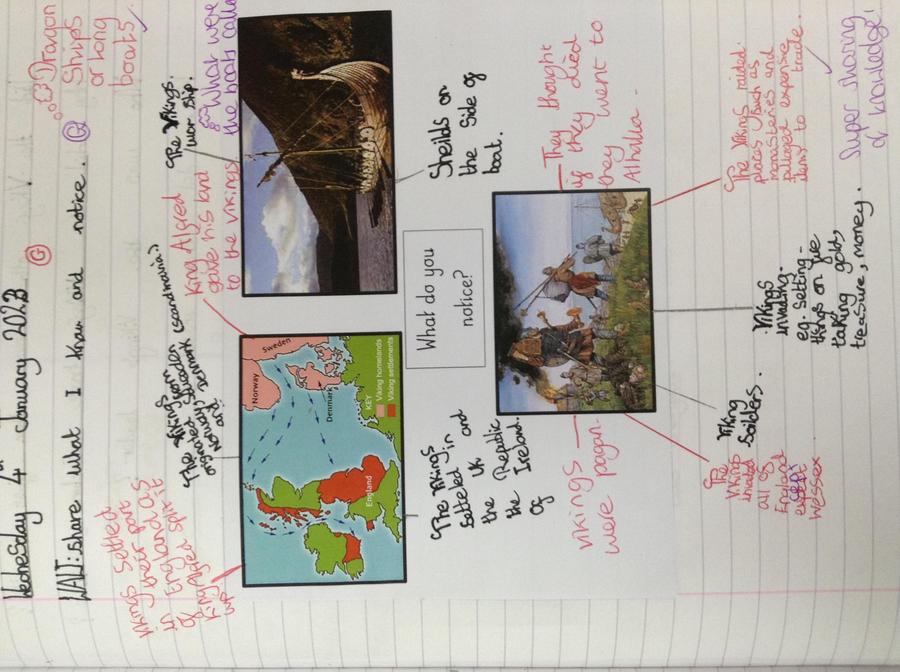 Wednesday 4th January 2023
WALT: share what I know and notice. G
G
Dragon
Ships
or long
boats
What were
the boats called
The Vikings.
war ship.
King Alfred
gave his land
to the vikings
The Vikings
originated from
Norway, Sweden
and Denmark
(scandinavia)
Vikings settled
in their part
of England as
King Alfred split it
up
Norway
Sweden
Denmark
England
KEY
Viking homelands
Viking settlements
What do you
notice?
Sheilds on
the side of
boat.
The Vikings
setteled in and
the UK
the Republic
of Ireland.
They thought
if they died
they went to
Athalla -
Vikings
were pagan.
The Vikings raided
places such as
monasteries and
pillaged expensive
items to trade.
Super sharing
of knowledge!
Vikings
invading.
eg. Setting
things on fire
taking gold,
treasure, money.
Viking
Soilders.
The
Vikings
invaded
all of
England
except
Wessex